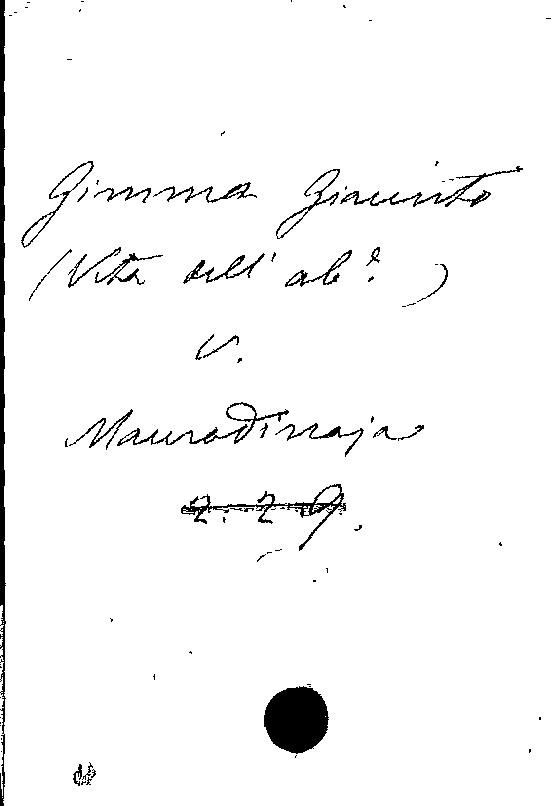 Gimma Giacinto
(Vita dell' abe.)
V.
Maurodinoja
2. 2 9.